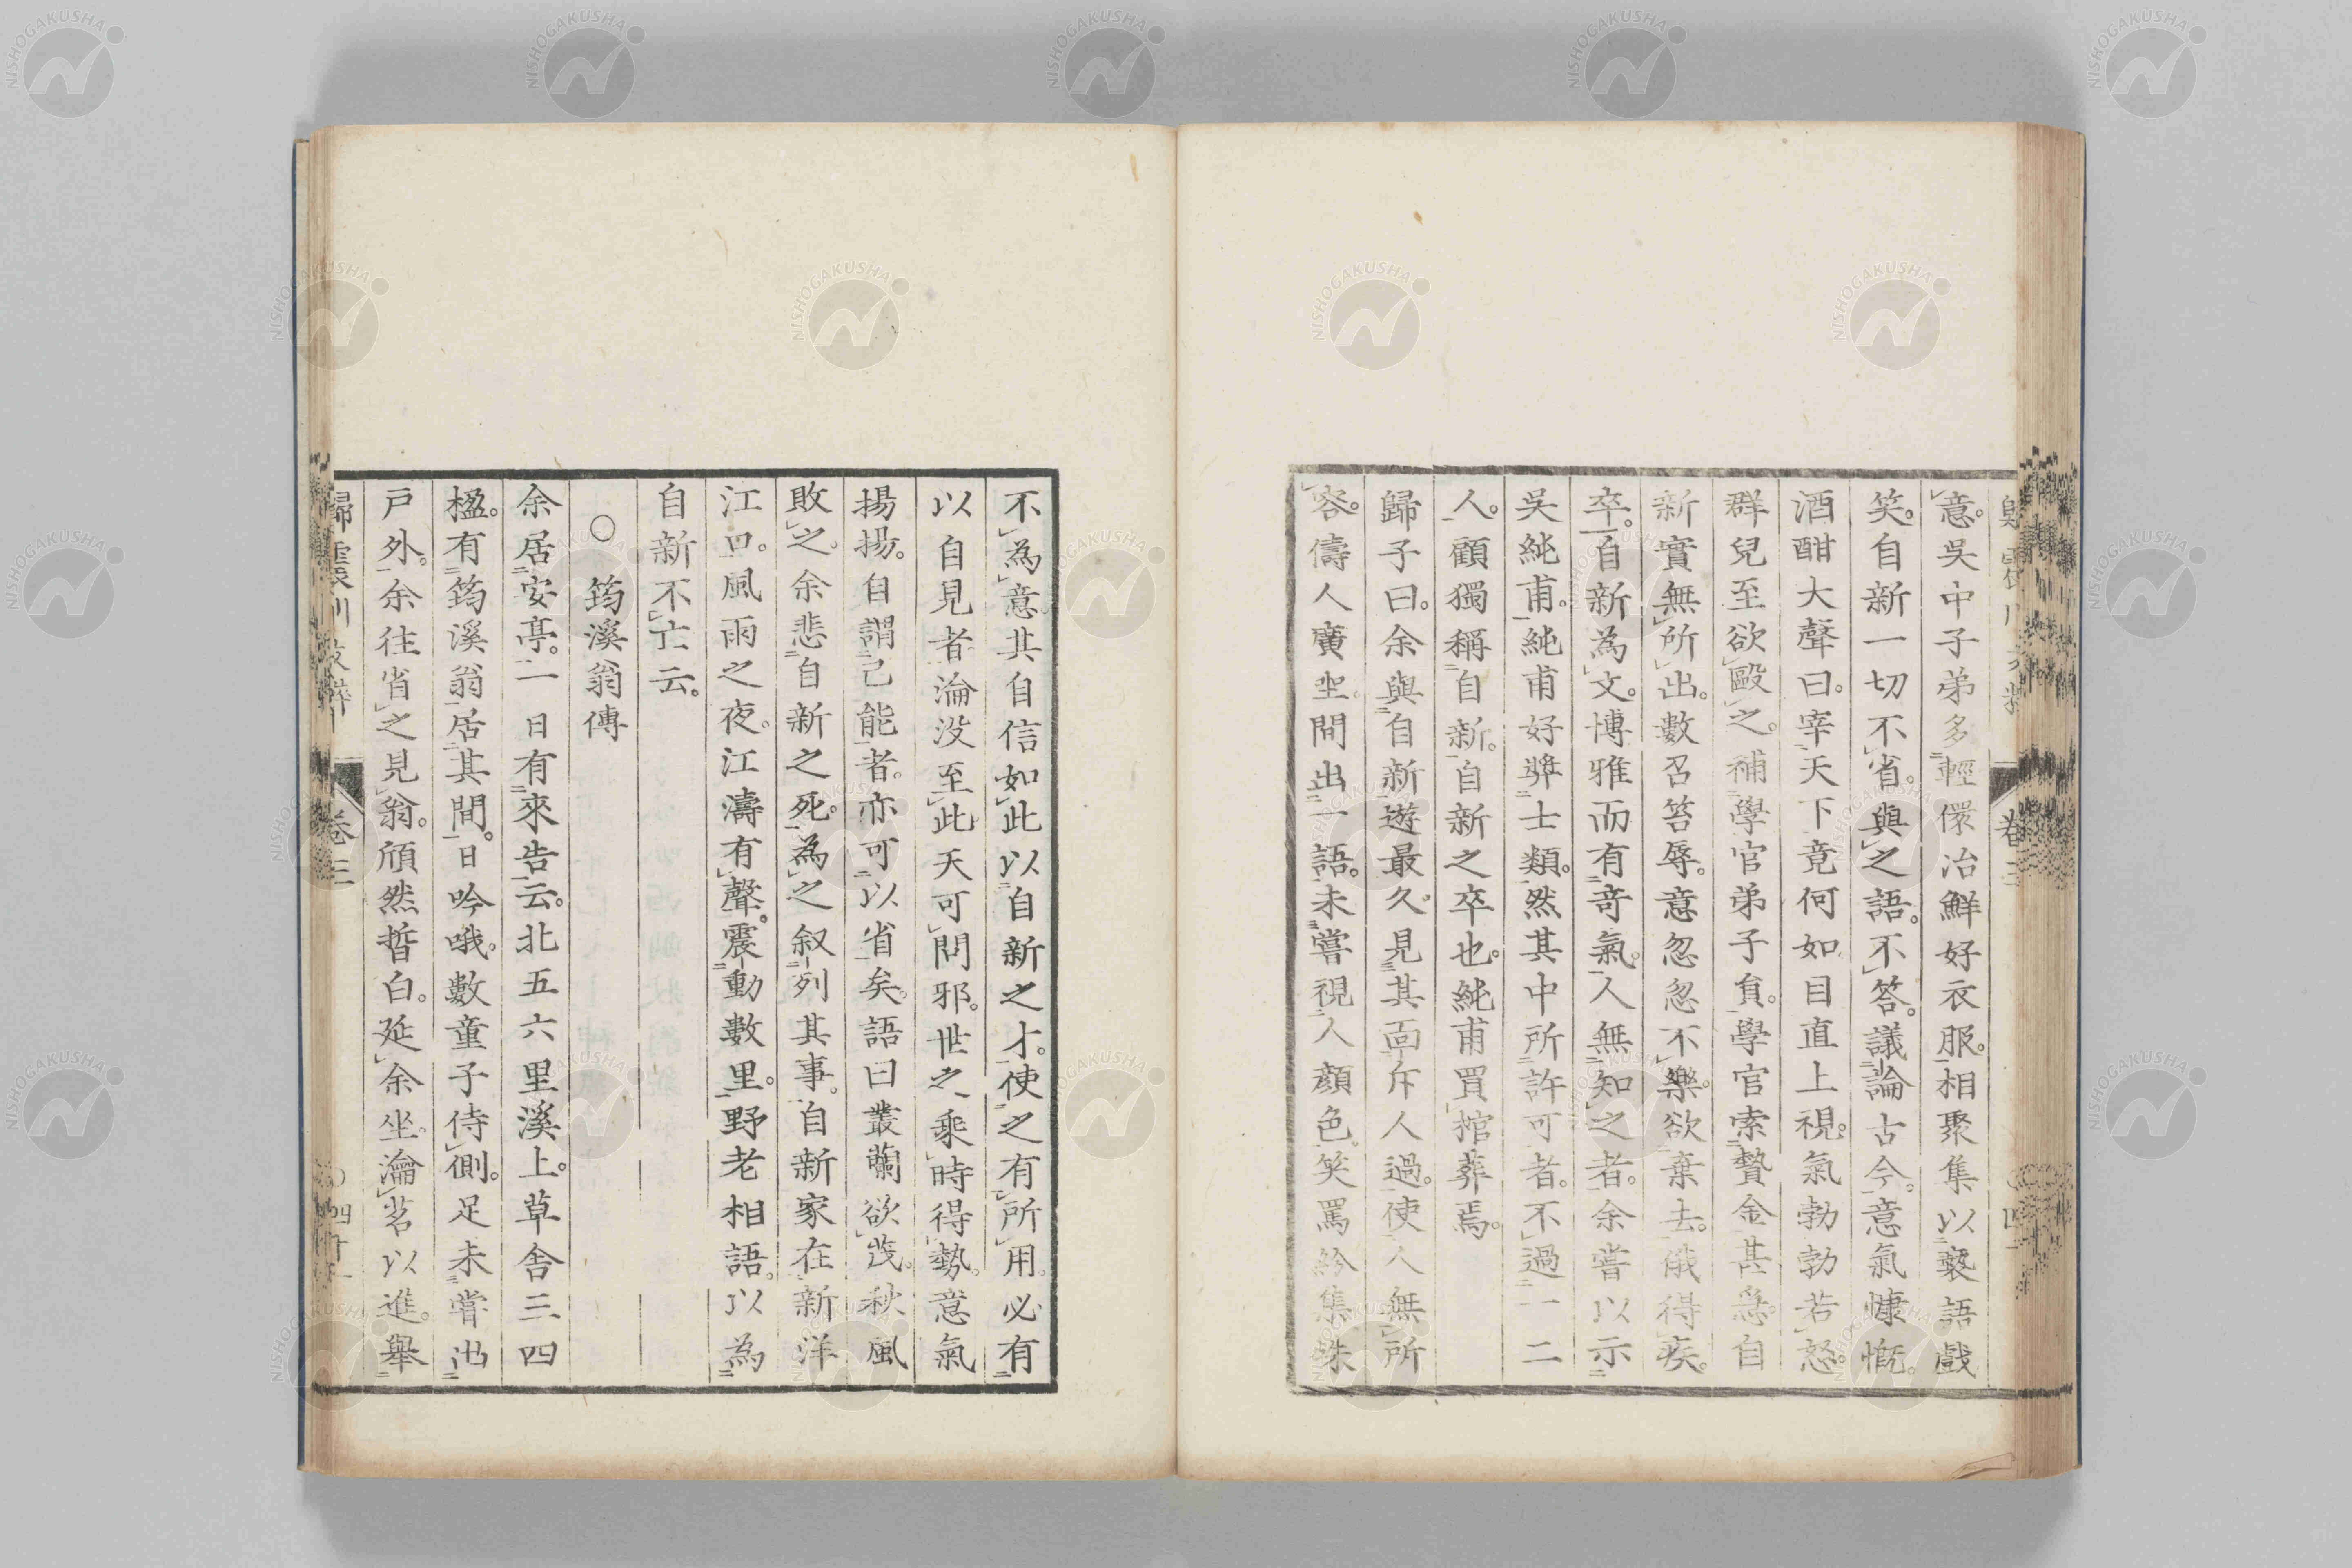 意。吳中子弟多輕儇冶鮮好衣服。相聚集以褻語戲
笑。自新一切不省。與之語。不答。議論古今。意氣慷慨。
酒酣大聲曰。宰天下竟何如目直上視。氣勃勃若怒。
群兒至欲毆之。補學官弟子負。學官索贄金甚急。自
新實無所出。數召笞辱。意忽忽不樂。欲棄去。俄得疾。
卒。自新為文。博雅而有竒氣。人無知之者。余嘗以示
吳純甫。純甫好奬士類。然其中所許可者。不過一二
人。顧獨稱自新。自新之卒也。純甫買棺葬焉。
歸子曰。余與自新遊最久。見其面斥人過。使人無所
容。儔人廣坐。間出一語。未嘗視人顏色。笑罵紛集。殊
不為意其自信如此以自新之才。使之有所用。必有
以自見者淪没至此天可問邪。世之乘時得勢。意氣
揚揚。自謂己能者。亦可以省矣。語曰叢蘭欲茂。秋風
敗之。余悲自新之死。為之叙列其事。自新家在新洋
江口。風雨之夜。江濤有聲。震動數里。野老相語。以為
自新不亡云。
○筠溪翁傳
余居安亭。一日有來告云。北五六里溪上。草舍三四
楹。有筠溪翁居其間。日吟哦。數童子侍側。足未嘗出
戶外。余往省之見翁。頎然晳白。延余坐。瀹茗以進。舉
歸震川文粹 卷三